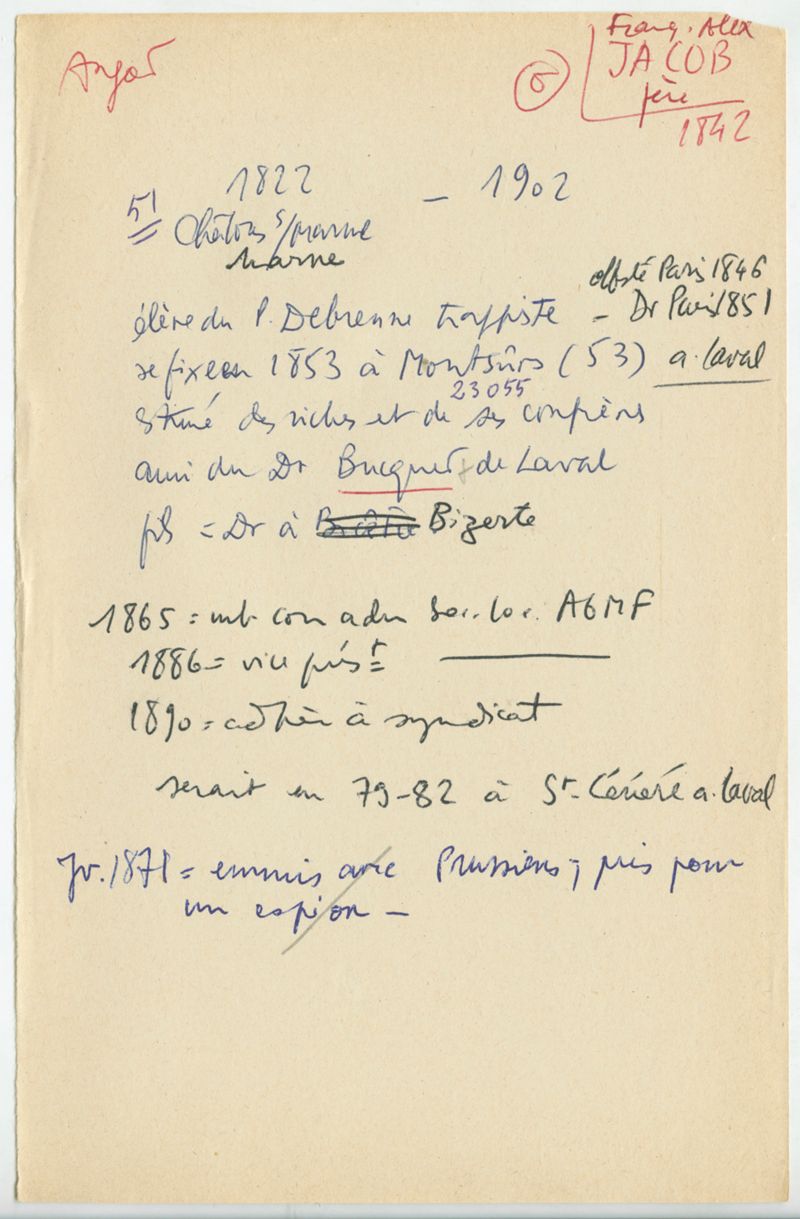 Angot
Franç. Alex
6
JACOB
père
1842
1822 – 1902
51
Châlons s/marne
marne
offsté Paris 1846
élève du P. Debrenne trappiste – Dr Paris 1851
se fixe en 1853 à Montsûrs (53) a. Laval
23055
estimé des riches et de ses confrères
ami du Dr Bucquet de Laval
fils = Dr à Bizerte
1865 = mb con adm Soc. loc. AGMF
1886 = vice prést
1890 = adhère à syndicat
serait en 79-82 à St. Céneré a. Laval
Jv. 1871 = ennuis avec Prussiens ; pris pour
un espion –